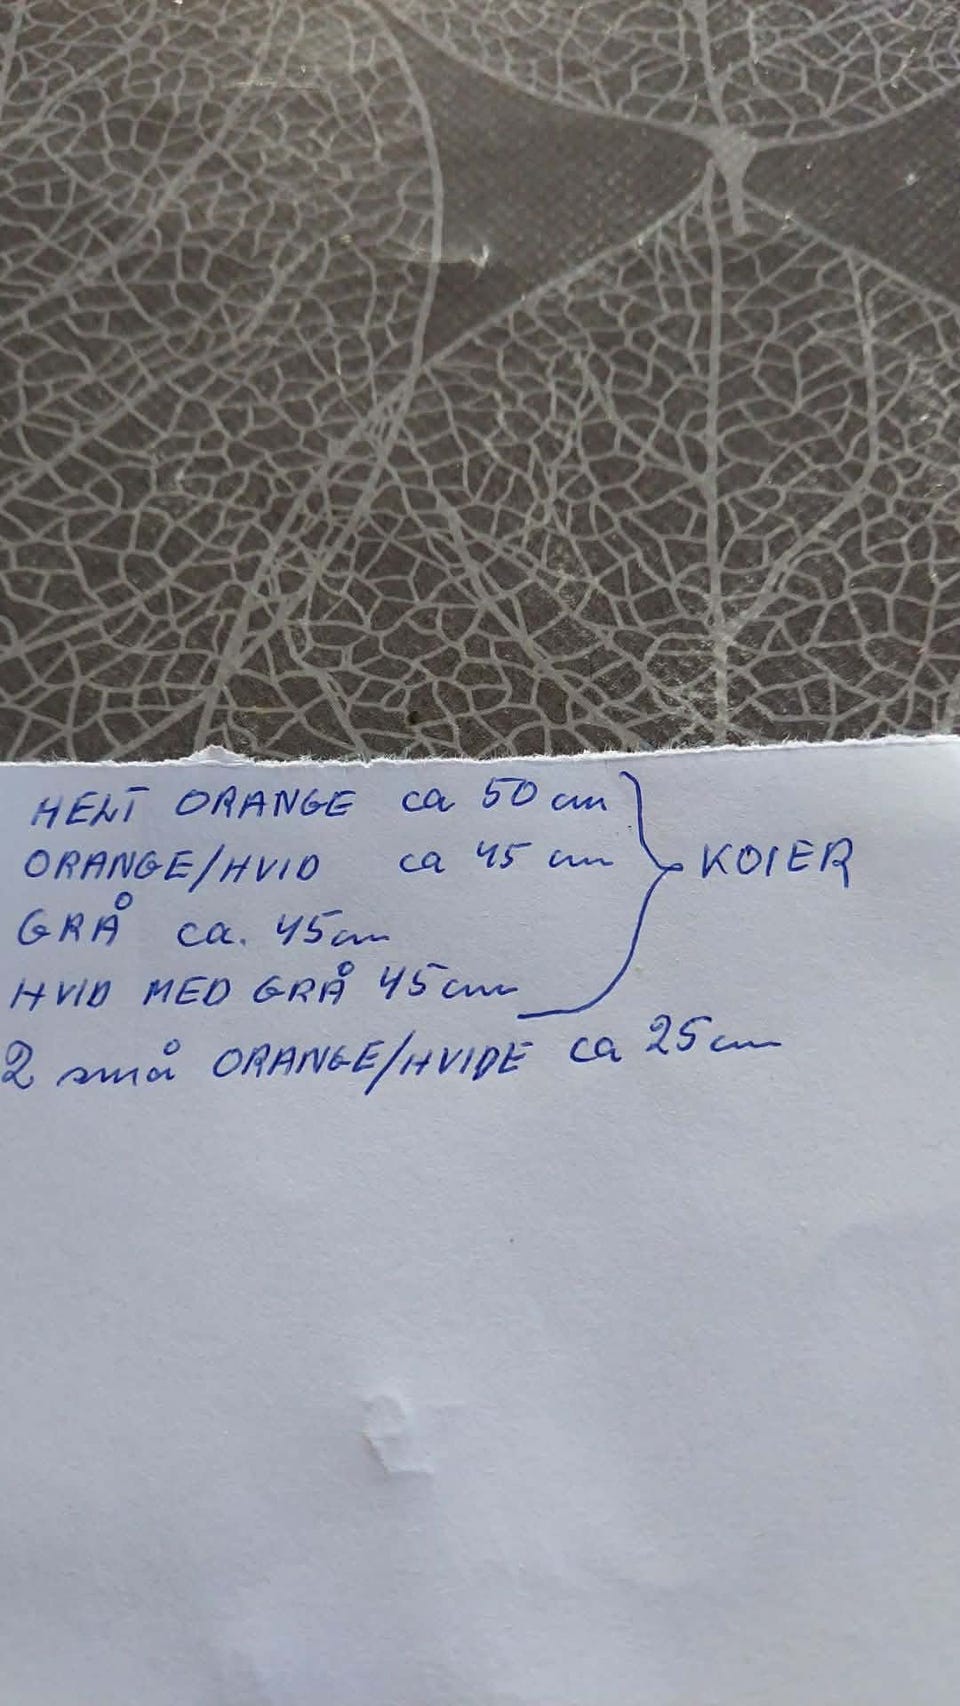 HELT ORANGE ca 50 cm
ORANGE/HVID ca 45 cm
KOIER
GRÅ ca. 45cm
HVID MED GRÅ 45cm
2 små ORANGE/HVIDE ca 25cm